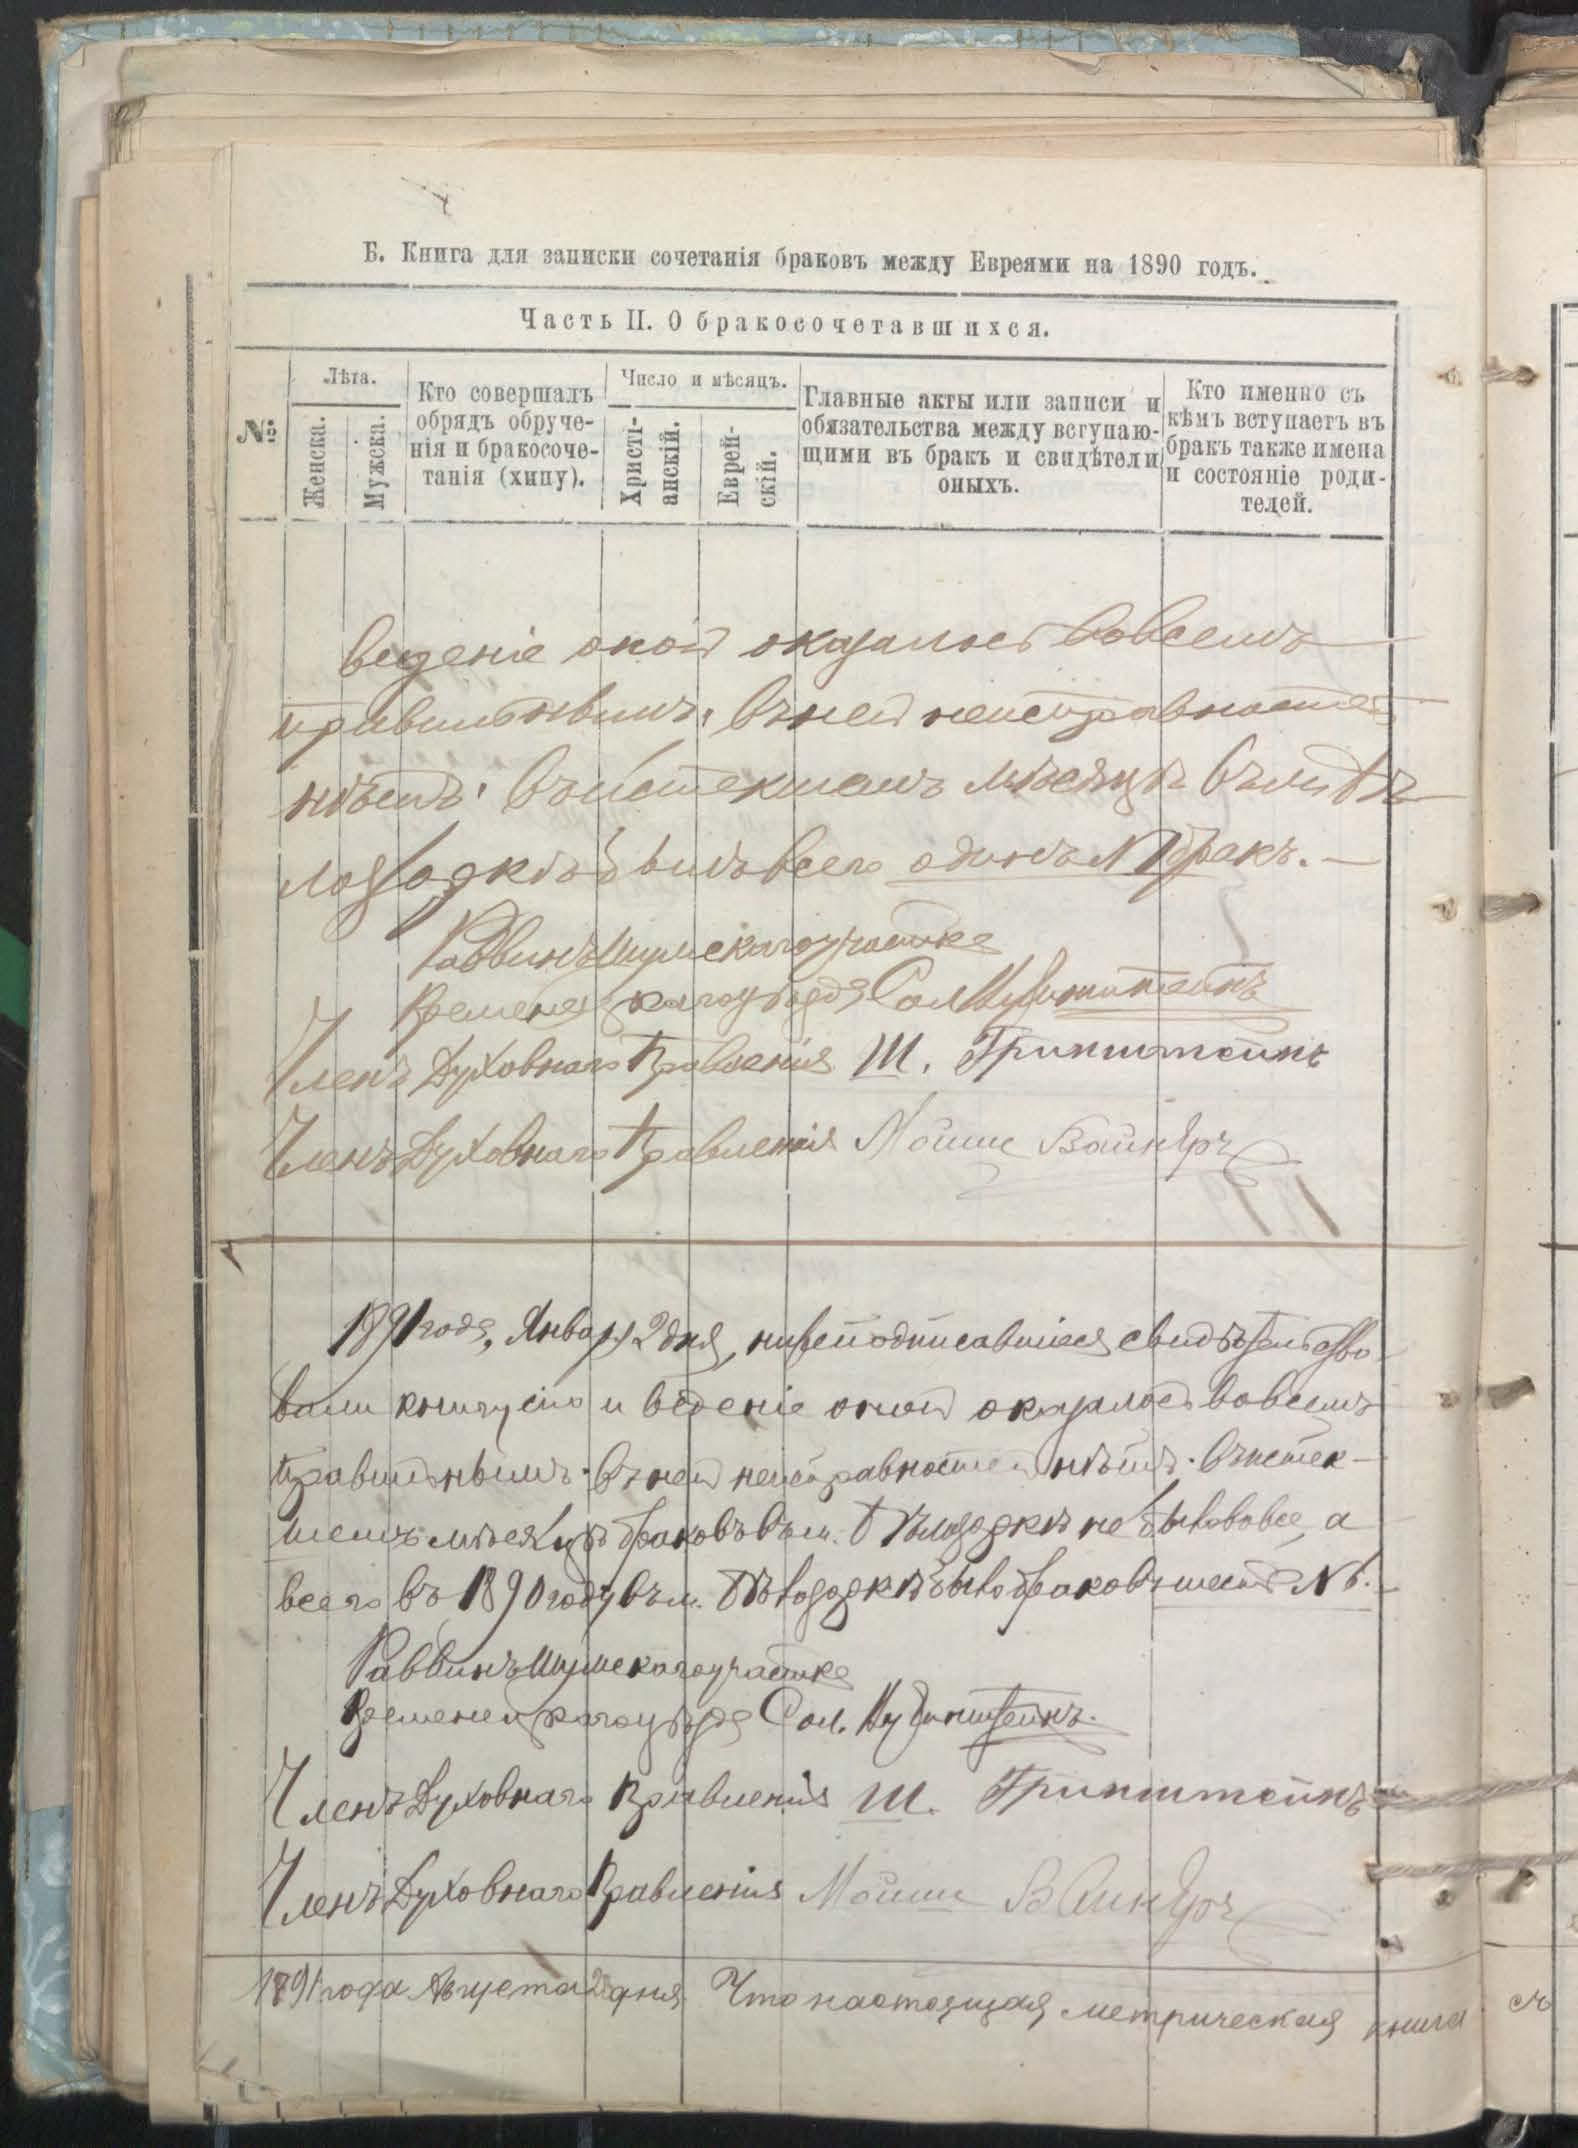 Б. Книга для записки сочетанія браковъ между Евреями на 1890 годъ.
Часть II. О бракосочетавшихся.
№
Лѣта.
Женска.
Мужска.
Кто совершалъ
обрядъ обруче-
нія и бракосоче-
танія (хипу).
Число и мѣсяцъ.
Христі-
анскій.
Еврей-
скій.
Главные акты или записи и
обязательства между вступаю-
щими въ бракъ и свидѣтели
оныхъ.
Кто именно съ
кѣмъ вступаетъ въ
бракъ также имена
и состояніе роди-
телей.
веденіе оной оказалось вовсемъ
правильнымъ, въ ней неисправностей
нѣтъ. Въ истекшемъ мѣсяцѣ въ м. Бѣ-
лозоркѣ былъ всего одинъ №1 бракъ. —
Раввинъ Шумскаго участка
Кременецкаго уѣзда Сол.
Членъ Духовнаго Правленія Ш. Гринштейнъ
Членъ Духовнаго Правленія Мойше Вайнеръ
1891 года, Января 2 дня, нижеподписавшіеся свидѣтельство-
вали книгу сію и веденіе оной оказалось вовсемъ
правильнымъ. въ ней неисправностей нѣтъ. Въ истек-
шемъ мѣсяцѣ браковъ въ м. Бѣлозоркѣ не было вовсе, а
всего въ 1890 году въ м. Бѣлозоркѣ было браковъ шесть №6. —
Раввинъ Шумскаго участка
Кременецкаго уѣзда Сол.
Членъ Духовнаго Правленія Ш. Гринштейнъ
Членъ Духовнаго Правленія Мойше Вайнеръ
1891 года Августа дня Что настоящая метрическая книга